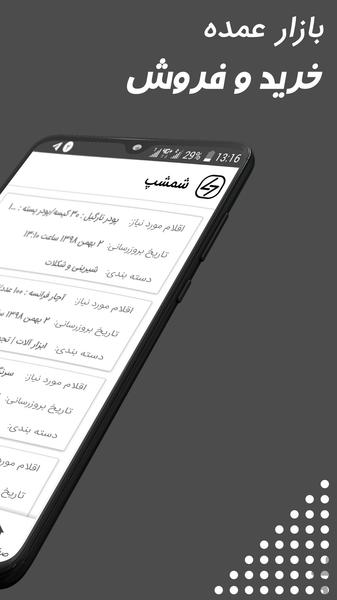 بازار عمده
خرید و فروش
29% 13:16
شمشپ
اقلام مورد نیاز: پودر نارگیل : ۳۰ کیسه/پودر پسته : ۱۰
تاریخ بروزرسانی: ۲ بهمن ۱۳۹۸ ساعت ۱۳:۱۰
دسته بندی: شیرینی و شکلات
اقلام مورد نیاز: آچار فرانسه : ۱۰۰ عدد
تاریخ بروزرسانی: ۲ بهمن ۱۳۹۸
دسته بندی: ابزار آلات /
اقلام مورد نیاز:
تاریخ بروزرسانی:
دسته بندی:
اقلام مورد
تاریخ